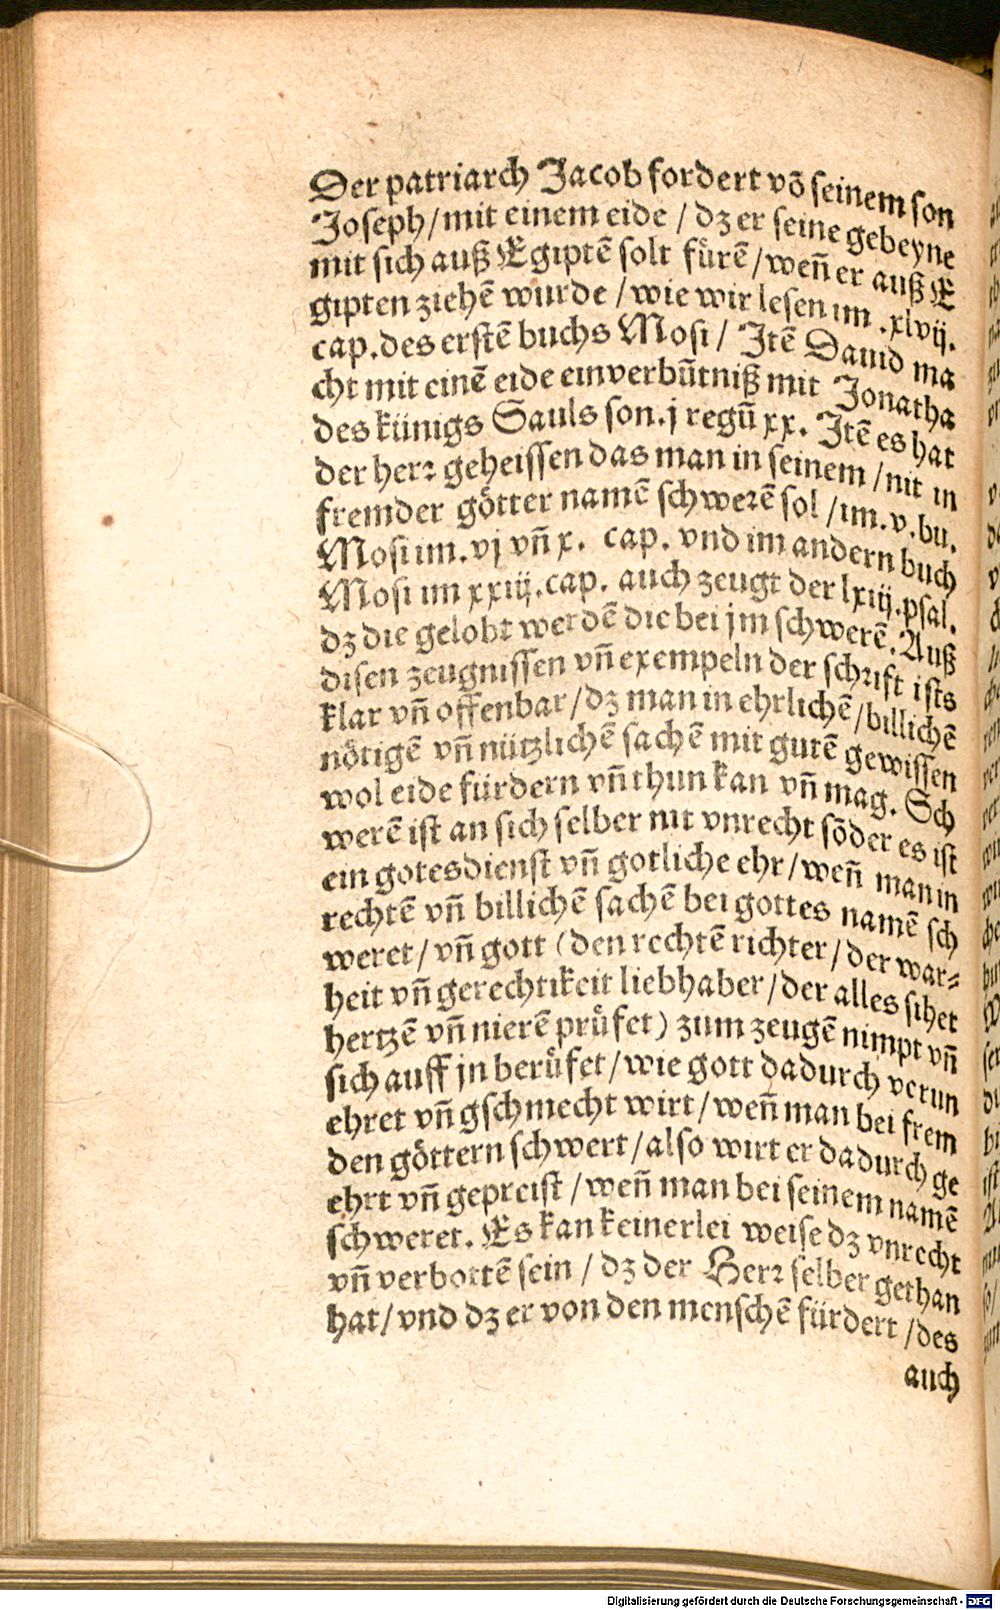 Der patriarch Jacob fordert võ seinem son
Joseph/mit einem eide / dz er seine gebeyne
mit sich auß Egiptē solt fürē/weñ er auß E
gipten ziehē wurde /wie wir lesen im .xlvij.
cap.des erstē buchs Mosi/ Itē Dauid ma
cht mit einē eide ein verbũtniß mit Jonatha
des künigs Sauls son.j regũ xx. Itē es hat
der herr geheissen das man in seinem /nit in
fremder götter namē schwerē sol /im.v.bu.
Mosi im.vj vñ x. cap. vnd im andern buch
Mosi im xxiij.cap. auch zeugt der lxiij.psal.
dz die gelobt werdē die bei jm schwerē. Auß
disen zeugnissen vñ exempeln der schrift ists
klar vñ offenbar/dz man in ehrlichē/billichē
nötigē vñ nützlichē sachē mit gutē gewissen
wol eide fürdern vñ thun kan vñ mag. Sch
werē ist an sich selber nit vnrecht sõder es ist
ein gotesdienst vñ gotliche ehr/weñ man in
rechtē vñ billichē sachē bei gottes namē sch
weret/ vñ gott (den rechtē richter/der war⸗
heit vñ gerechtikeit liebhaber/der alles sihet
hertzē vñ nierē prüfet) zum zeugē nimpt vñ
sich auff jn berüfet/wie gott dadurch verun
ehret vñ gschmecht wirt/weñ man bei frem
den göttern schwert/also wirt er dadurch ge
ehrt vñ gepreist /weñ man bei seinem namē
schweret. Es kan keinerlei weise dz vnrecht
vñ verbottē sein / dz der Herr selber gethan
hat/vnd dz er von den menschē fürdert /des
auch
Digitalisierung gefördert durch die Deutsche Forschungsgemeinschaft - DFG